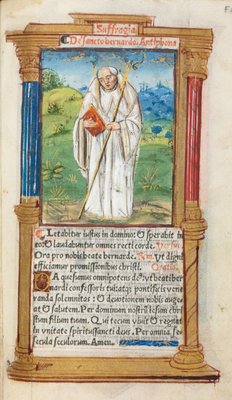 Suffragia
De sancto bernardo: Antiphona
Letabitur iustus in domino: & sperabit in
eo: & laudabuntur omnes recti corde. Versus
Ora pro nobis beate bernarde. Rm. Ut digni
efficiamur promissionibus christi. Oratio.
Da quesumus omnipotens deus: ut beati ber
nardi confessoris tui atque pontificis vene
randa solemnitas: & deuotionem nobis auge
at & salutem. Per dominum nostrum iesum chri
stum filium tuum. Qui tecum viuit & regnat
in vnitate spiritussancti deus. Per omnia se
cula seculorum. Amen.